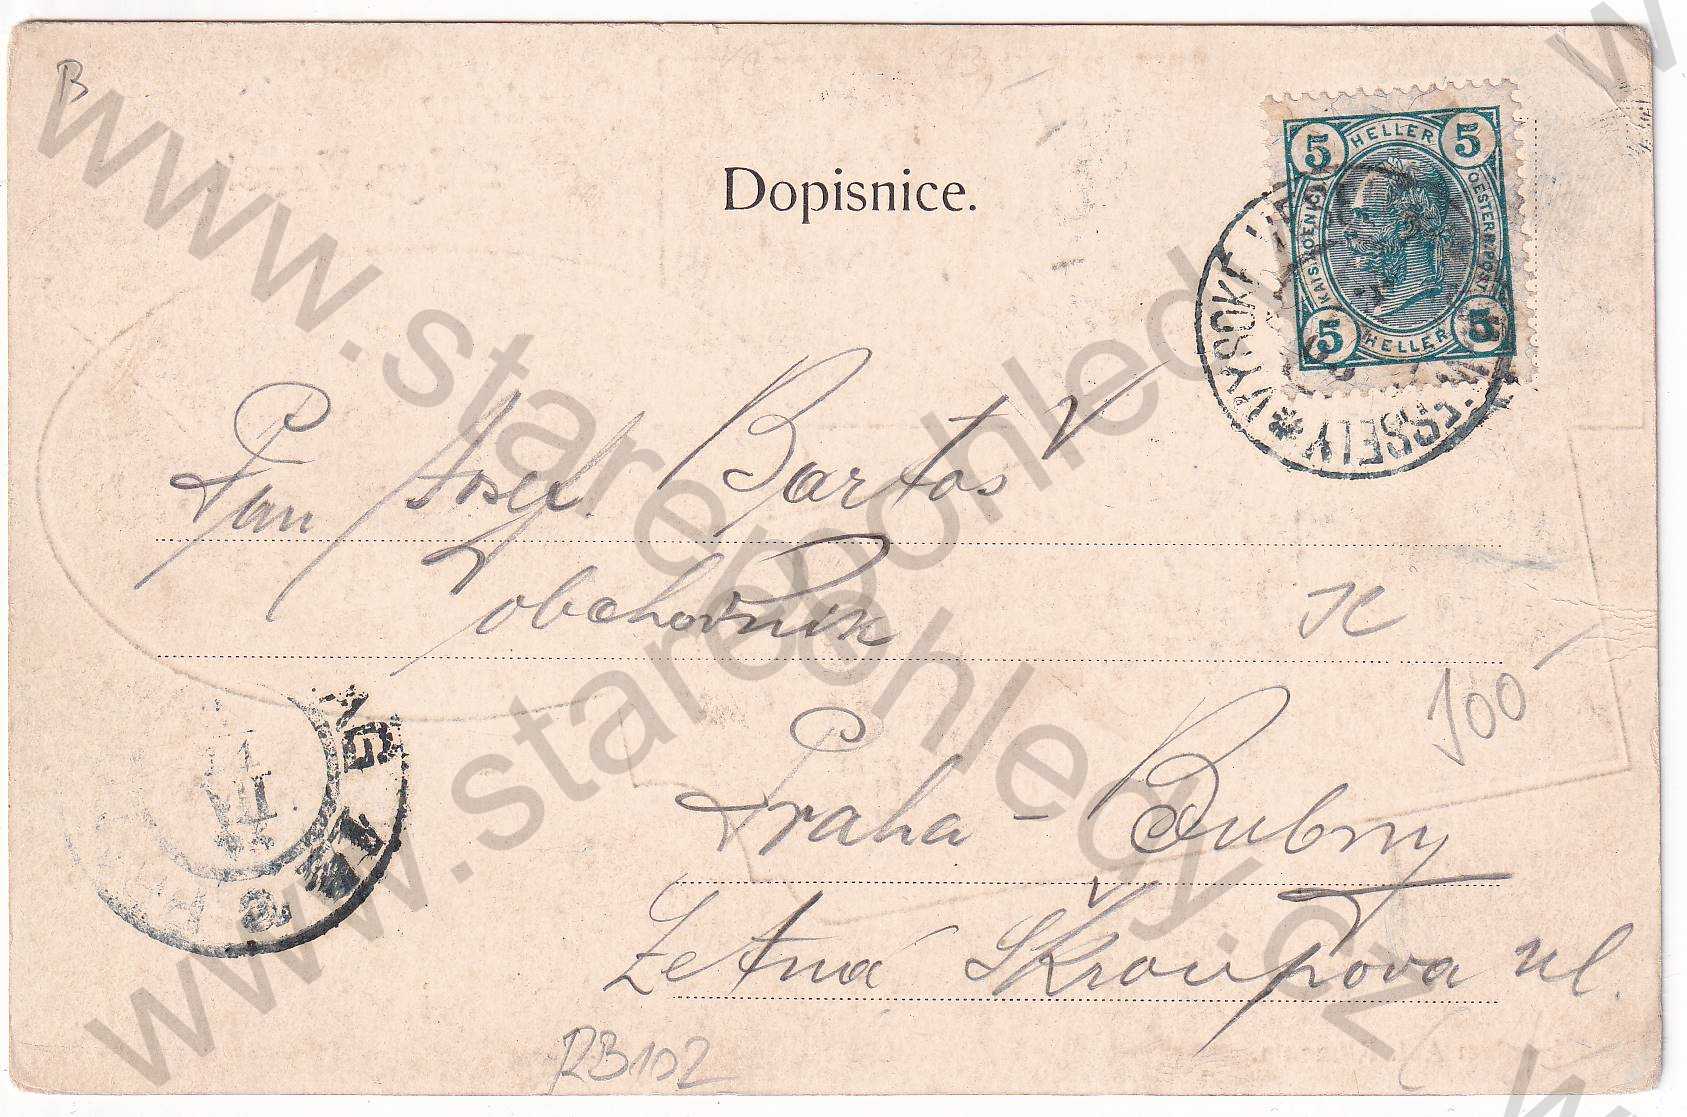 B
Dopisnice.
5 HELLER 5
KAIS. KOENIGL. OESTERR. POST.
5 HELLER 5
VYSOKÉ
WESSELY
Pan Josef Bartoš
obchodník
Praha - Bubny
Letná Škroupova ul.
K
100
RB102
www.starepohledy.cz
www.starepohledy.cz